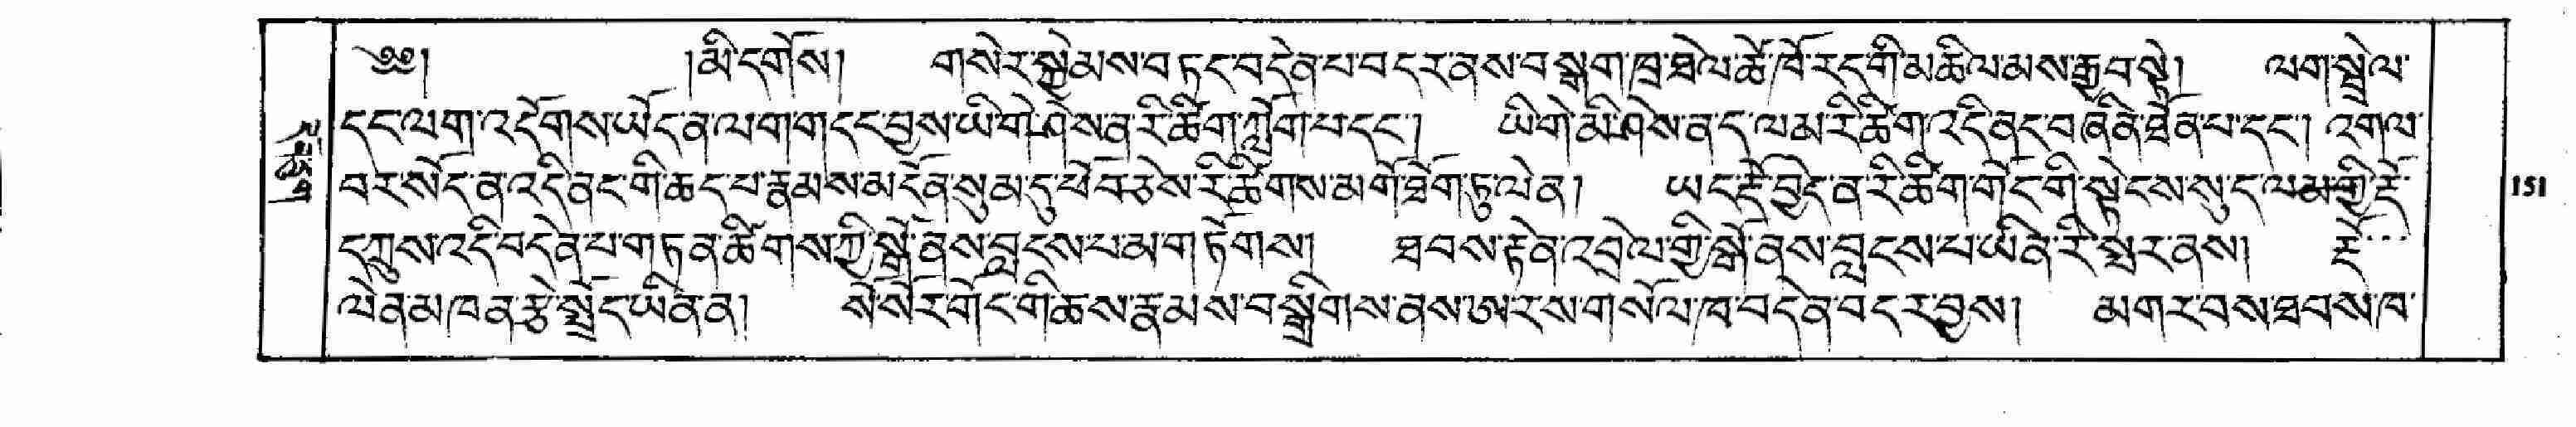 ༄༅། །མི་དགོས། གསེར་སྐྱེམས་བཏང་བདེན་པ་བདར་ནས་བསྒྲག་ཁྲ་ཐེལ་ཚེ་ཁོ་རང་གི་མཆིལ་མས་རྒྱབ་སྟེ། ལག་སྦྲེལ་
དང་ལག་འདོགས་ཡོད་ན་ལག་གདང་བྱས་ཡི་གེ་ཤེས་ན་རི་ཚིག་ཀློག་པ་དང་། ཡི་གེ་མི་ཤེས་ན་ད་ལམ་རི་ཚིག་འདི་ནང་བཞིན་ཐོན་པ་དང་། འགལ་
བར་སོང་ན་འདི་ནང་གི་ཆད་པ་རྣམས་མངོན་སུམ་དུ་ཕོབ་ཅེས་རི་ཚིགས་མགོ་ཐོག་ཏུ་ལེན། ཡང་རྡོ་བྱེད་ན་རི་ཚིག་གོང་གི་སྟེངས་སུ་ད་ལམ་གྱི་རྡོ་
དཀྲུས་འདི་བདེན་པ་གཏན་ཚིགས་ཀྱི་སྒོ་ནས་བླངས་པ་མ་གཏོགས། ཐབས་རྟེན་འབྲེལ་གྱི་སྒོ་ནས་བླངས་པ་ཡིན་རི་སྤར་ནས། རྡོ་
ལེན་མཁན་རྩེ་སྤྲོད་ཡིན་ན། སོ་སོར་གོང་གི་ཆས་རྣམས་བསྒྲིགས་ནས་ཨ་རས་གསོལ་ཁ་བདེན་བདར་བྱས། མགར་བས་ཐབས་ཁ་
151